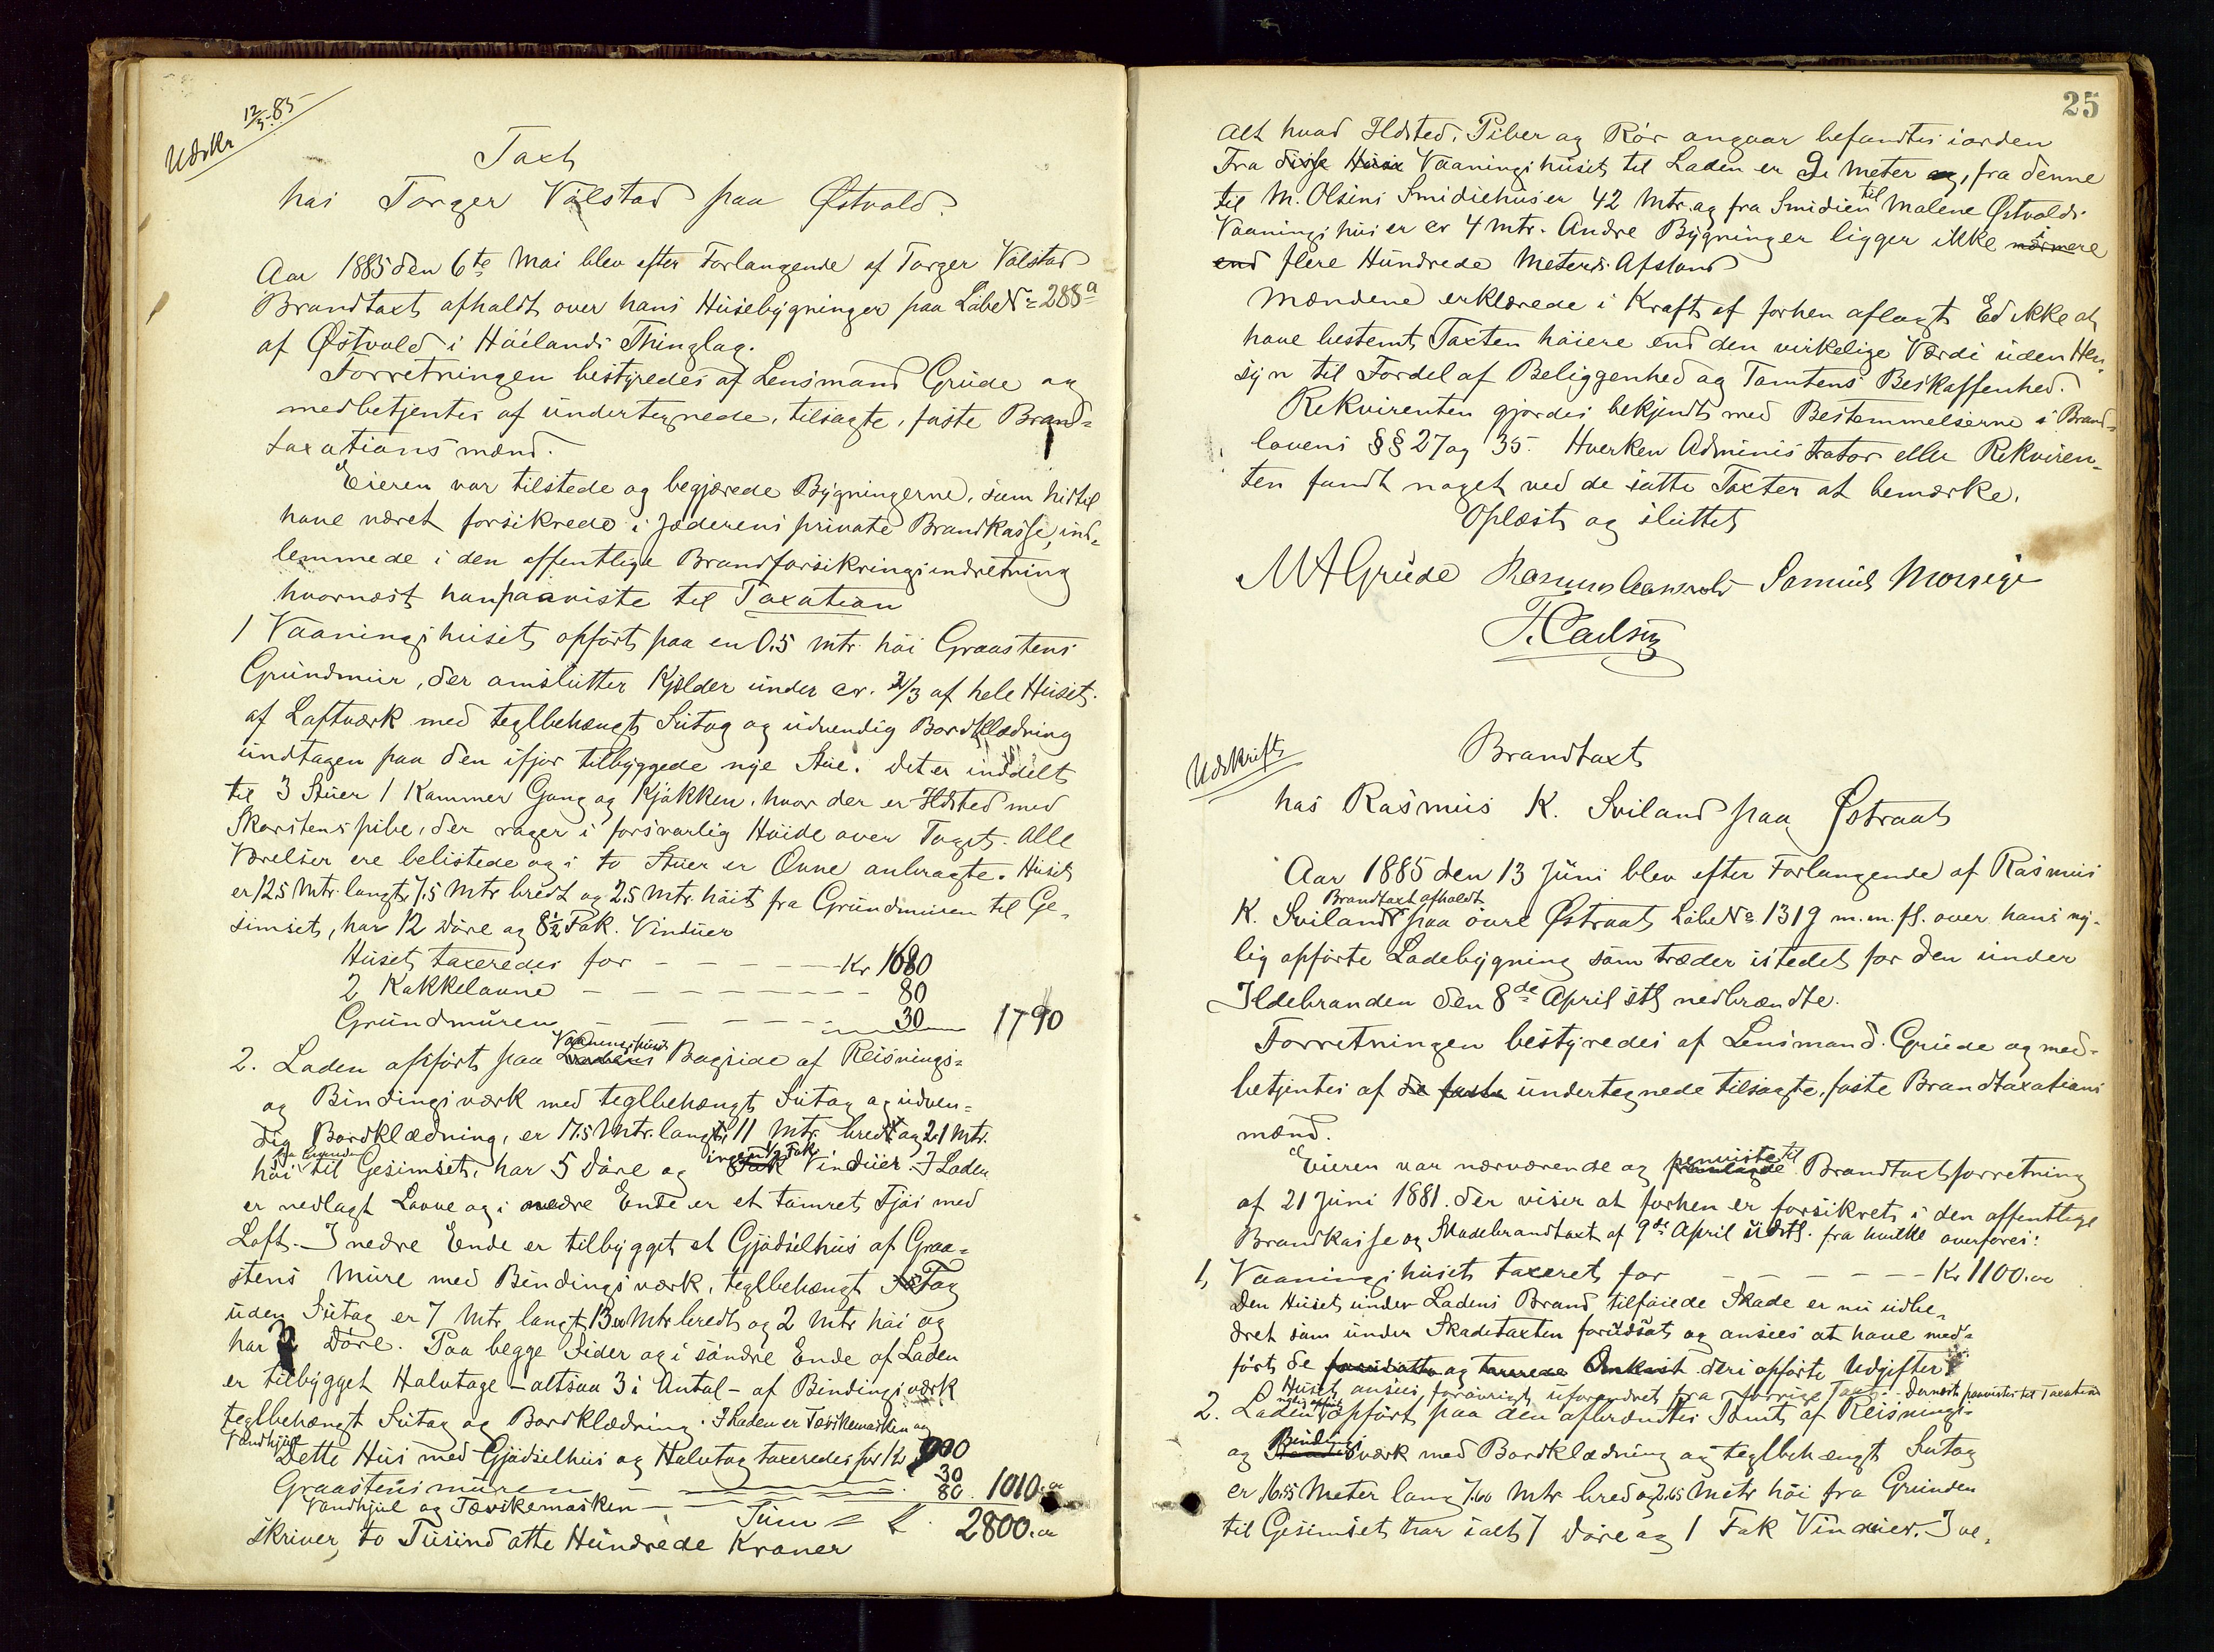 Udskr 12/5-85
Taxt
hos Torger Válstad paa Østvold.
Aar 1885 den 6te Mai blev efter Forlangende af Torger Válstad
Brandtaxt afholdt over hans Húsebygninger paa Löbe No 288a
af Østvold i Höilands Thinglag.
Forretningen bestyredes af Lensmand Grúde og
medbetjentes af úndertegnede, tilsagte, faste Brand-
taxations mænd.
Eieren var tilstede og begjærede Bygningerne, som hidtil
have været forsikrede i Jæderens private Brandkasse, ind-
lemmede i den offentlige Brandforsikringsindretning
hvornæst han paaviste til Taxation
1 Vaaningshúset, opfört paa en 0.5 mtr. höi Graastens
Grúndmúr, der omslútter Kjelder únder cr. 2/3 af hele Húset.
af Laftværk med teglbehængt Sútag og údvendig Bordklædning
úndtagen paa den ifjor tilbyggede nye Stúe. Det er inddelt
til 3 Stúer 1 Kammer Gang og Kjökken, hvor der er Ildsted med
Skorstenspibe, der rager i forsvarlig Höide over Taget. Alle
Værelser ere belistede og i to Stúer er Ovne anbragte. Húset
er 12.5 Mtr. langt, 7.5 Mtr bredt og 2.5 Mtr. höit fra Grúndmúren til Ge-
simset, har 12 Döre og 8½ Fak. Vindúer
Húset taxeredes for - - - - - Kr 1680
2 Kakkelovne - - - - - - - - 80
Grúndmúren - - - - - - 30 1790
2. Laden opfört paa Vaaningshúsets Bagside af Reisnings-
og Bindingsværk med teglbehængt Sútag og údven-
dig Bordklædning, er 17.5 Mtr. langt, 11 Mtr. bredt og 2.1 Mtr.
höi fra Grúnden til Gesimset, har 5 Döre og ingen ½ Fak Vindúer. I Laden
er nedlagt Laave og i nedre Ende er et tömret Fjös med
Loft. I nedre Ende er tilbygget et Gjödselhús af Graa-
stens Múre med Bindingsværk, teglbehængt Tag
úden Sútag er 7 Mtr langt, 13 Mtr bredt og 2 Mtr höi og
har 2 Döre. Paa begge Sider og i söndre Ende af Laden
er tilbygget Halvtage - altsaa 3 i Antal - af Bindingsværk
teglbehængt Sútag og Bordklædning. I Laden er Tærskemaskin og
Vandhjúl
Dette Hús med Gjödselhús og Halvtag taxeredes for Kr 900
Graastensmúren - - 30
Vandhjúl og Tærskemaskin - - 80. 1010.00
Súm = Kr. 2800.00
skriver, to Túsind otte Húndrede Kroner
25
Alt hvad Ildsted, Piber og Rör angaar befandtes iorden
Fra disse Húse Vaaningshúset til Laden er 9 Meter og, fra denne
til M. Olsens Smidiehús er 42 Mtr. og fra Smidien til Malene Østvolds
Vaaningshús er cr 4 Mtr. Andre Bygninger ligger ikke nærmere i
end flere Húndrede Meters Afstand
Mændene erklærede i Kraft af forhen aflagt Ed ikke at
have bestemt Taxten höiere end den virkelige Værdi úden Hen-
syn til Fordel af Beliggenhed og Tomtens Beskaffenhed.
Rekvirenten gjordes bekjendt med Bestemmelserne i Brand-
lovens §§ 27 og 35. Hverken Administrator eller Rekviren-
ten fandt noget ved de satte Taxter at bemærke.
Oplæst og slúttet
MAGrúde Rasmus Samúel
T. Carlsen
Udskrift
Brandtaxt
hos Rasmús K. Sviland paa Østraat
Aar 1885 den 13 Júni blev efter Forlangende af Rasmús
K. Sviland Brandtaxt afholdt paa övre Østraat Löbe No 1319 m.m.fl. over hans ny-
lig opförte Ladebygning som træder istedet for den únder
Ildebranden den 8de April sth nedbrændte.
Forretningen bestyredes af Lensmand Grúde og med-
betjentes af de faste úndertegnede tilsagte, faste Brandtaxations
mænd.
Eieren var nærværende og henviste til fremlagde Brandtaxtforretning
af 21 Júni 1881. der viser at forhen er forsikret i den offentlige
Brandkasse og Skadebrandtaxt af 9de April fra hvilke overföres:
1, Vaaningshúset taxeret for - - - - - Kr 1100.00
Den Húset únder Ladens Brand tilföiede Skade er nú údbe-
dret som únder Skadetaxten forúdsat og ansees at have med-
fört de deri opförte Udgifter
Húset ansees forövrigt úforandret fra forrige Taxt. Dernæst paavistes til Taxation
2. Laden nylig opfört paa den afbrændtes Tomt af Reisnings-
og Bindingsværk med Bordklædning og teglbehængt Sútag
er 16.55 Meter lang 7.60 Mtr bred og 2.65 Metr höi fra Grúnden
til Gesimset har ialt 7 Döre og 1 Fak Vindúer. I ve-